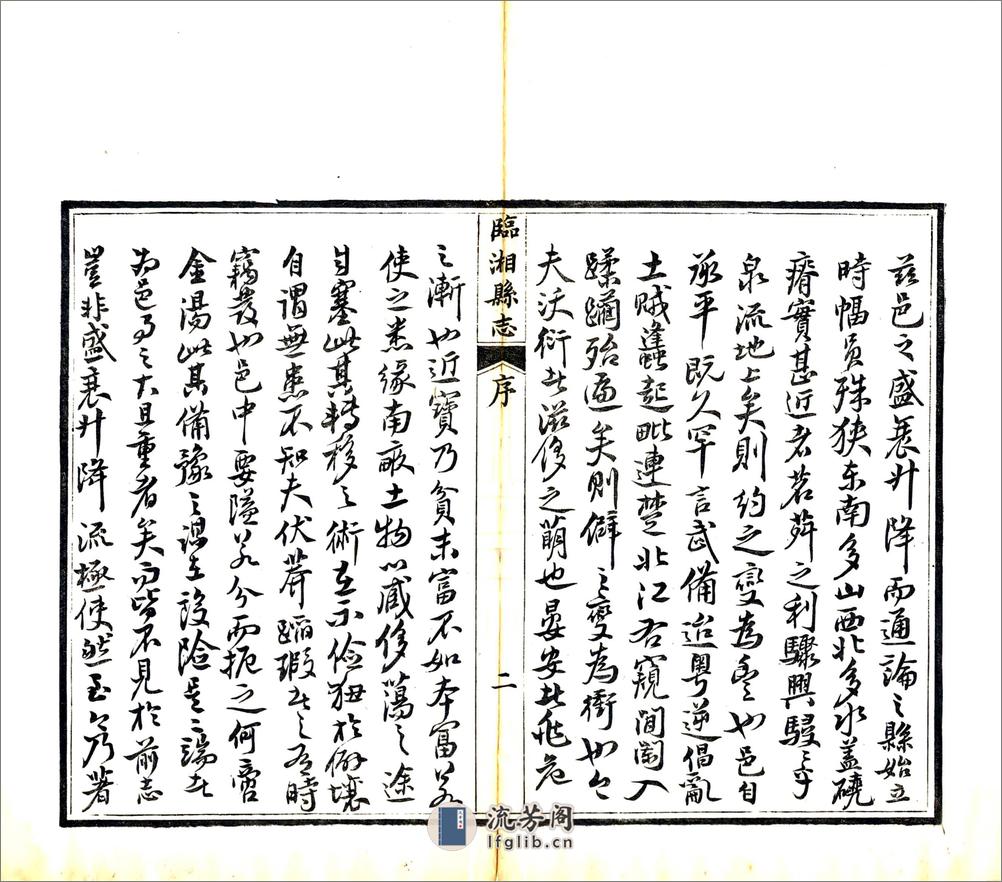 茲邑之盛衰升降而通論之縣始立
時幅員殊狹東南多山西北多水蓋磽
瘠實甚近者茗荈之利驟興駸〻乎
泉流地上矣則約之變為豐也邑自
承平既久罕言武備迨粵逆倡亂
土賊蠭起毗連楚北江右窺間闌入
蹂躪殆遍矣則僻之變為衝也今
夫沃衍者滋侈之萌也晏安者飛危
臨湘縣志
序
二
之漸也近寶乃貧末富不如本富若
使之悉緣南畝土物心臧侈蕩之途
自塞此其轉移之術在示儉狃於僻壤
自謂無患不知夫伏莽蹈瑕者之有時
竊發也邑中要隘若分而扼之何啻
金湯此其備豫之謀在設險是二端者
為邑事之大且重者矣而皆不見於前志
豈非盛衰升降流極使然至今乃著
流芳阁
lfglib.cn